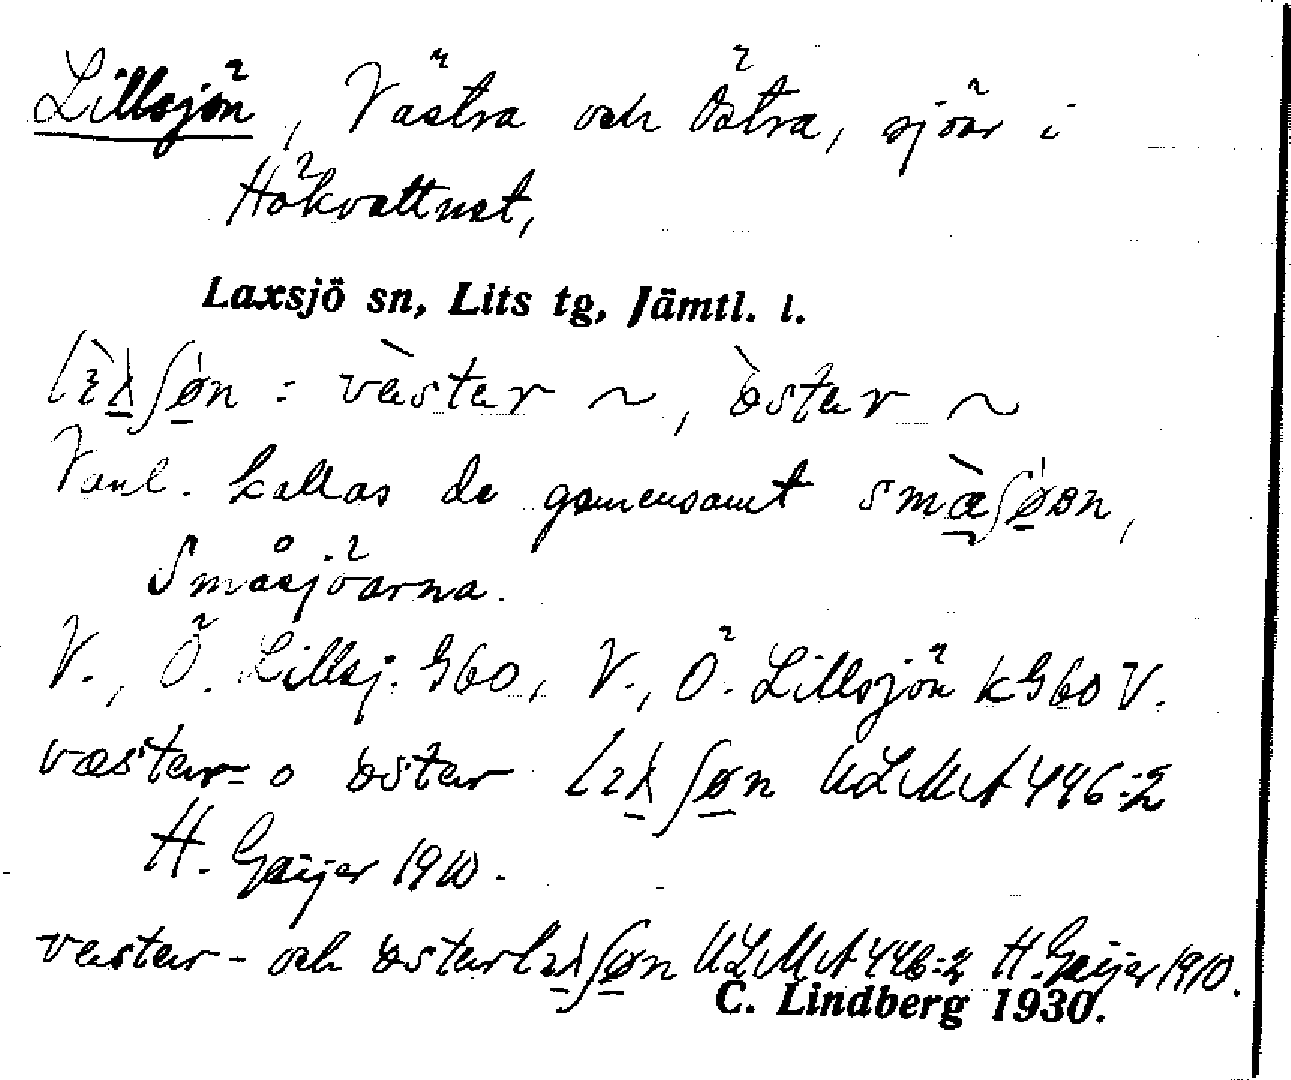 Lillsjön, Västra och Östra, sjöar i
Håkvattnet,
Laxsjö sn, Lits tg, Jämtl. l.
: västar ~, östar ~
Vanl. kallas de gemensamt
Småsjöarna.
V., Ö. Lillsj. G60, V., Ö. Lillsjön KG60 V.
væstar- o östar ULMA 446:2
H. Geijer 1910.
vestar- och ULMA 446:2 H. Geijer 1910.
C. Lindberg 1930.